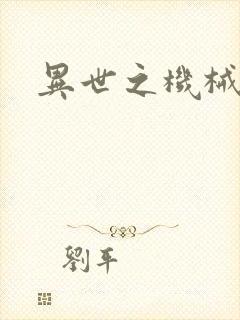 異世之機械
劉平